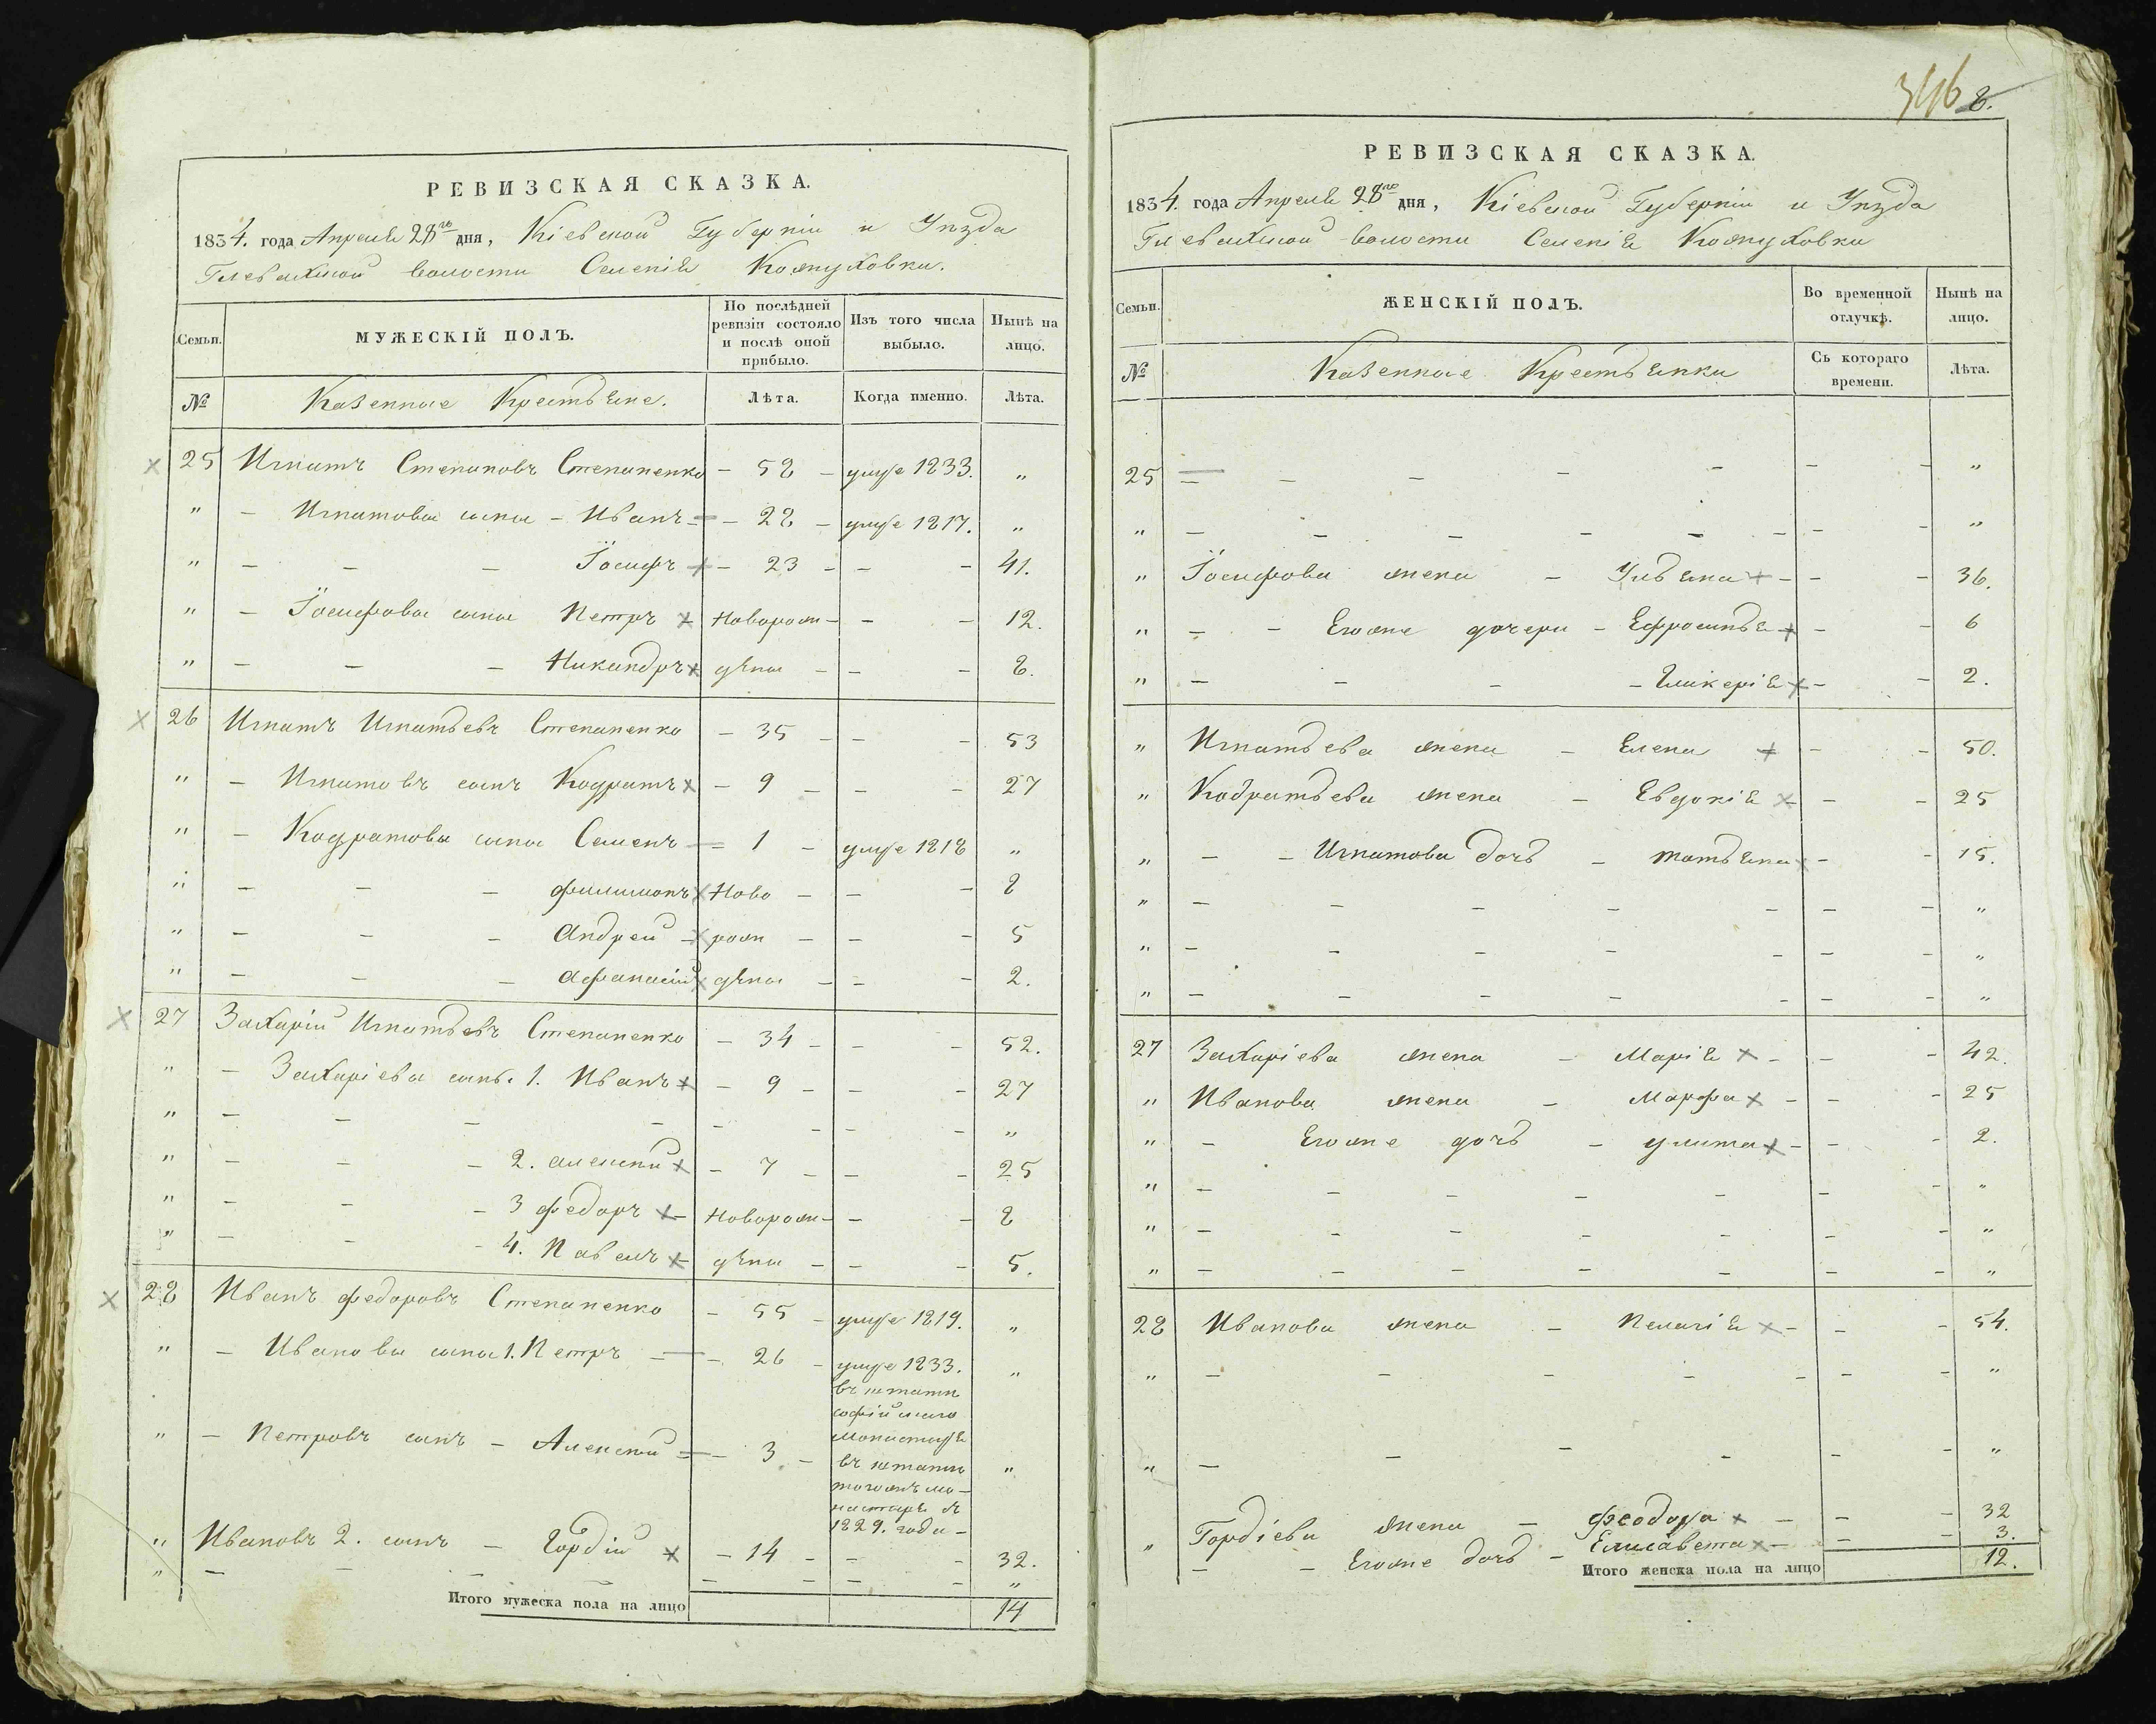 РЕВИЗСКАЯ СКАЗКА.
1834. года Апреля 28го дня, Кіевской Губерніи и Уѣзда
Глевахской волости Селенія Кожуховки.
Семьи.
МУЖЕСКІЙ ПОЛЪ.
По послѣдней ревизіи состояло и послѣ оной прибыло.
Изъ того числа выбыло.
Нынѣ на лицо.
№ Казенные Крестьяне. Лѣта. Когда именно. Лѣта.
25 Игнатъ Степановъ Степаненко - 58 - умре 1833. „
„ - Игнатовы сыны - Иванъ - 28 - умре 1817. „
„ - - - Іосифъ - 23 - - - 41.
„ - Іосифовы сыны Петръ Новорож- - - 12.
„ - - - Никандръ дѣны - - - 8.
26 Игнатъ Игнатьевъ Степаненко - 35 - - - 53
„ - Игнатовъ сынъ Кодратъ - 9 - - - 27
„ - Кодратовы сыны Семенъ - 1 - умре 1818 „
„ - - - Филимонъ Ново - - - 8
„ - - - Андрей рож - - - 5
„ - - - Афанасій дѣны - - - 2.
27 Захарій Игнатьевъ Степаненко - 34 - - - 52.
„ - Захаріевы сынь. 1. Иванъ - 9 - - - 27
„ - - - - - - - - „
„ - - - 2. Алексѣй - 7 - - - 25
„ - - - 3 Федоръ - Новорож- - - 8
„ - - - 4. Павелъ - дѣны - - - 5.
28 Иванъ Федоровъ Степаненко - 55 - умре 1819. „
„ - Ивановы сыны 1. Петръ - 26 - умре 1833. „
въ штатѣ
софійскаго
монастыря
„ - Петровъ сынъ - Алексѣй - 3 - въ штатѣ „
тогожъ мо-
настыря съ
1829. года -
„ Ивановъ 2. сынъ - Гордій - 14 - - - 32.
„ - - - - - - - - „
Итого мужеска пола на лицо 14
346 8.
РЕВИЗСКАЯ СКАЗКА.
1834. года Апреля 28го дня, Кіевской Губерніи и Уѣзда
Глевахской волости Селенія Кожуховки
Семьи.
ЖЕНСКІЙ ПОЛЪ.
Во временной отлучкѣ.
Нынѣ на лицо.
№ Казенные Крестьянки Съ котораго времени. Лѣта.
25 - - - - - - - „
„ - - - - - - - „
„ Іосифова жена - Ульяна - - - 36.
„ - - Егоже дочери - Ефросинья - - 6
„ - - - - Гликерія - - 2.
„ Игнатьева жена - Елена - - 50.
„ Кодратьева жена - Евдокія - - 25
„ - - Игнатова дочь - татьяна - - 15.
„ - - - - - - - „
„ - - - - - - - „
„ - - - - - - - „
27 Захаріева жена - Марія - - - 42.
„ Иванова жена - Марфа - - - 25
„ - Егоже дочь - улита - - - 2.
„ - - - - - - - „
„ - - - - - - - „
„ - - - - - - - „
28 Иванова жена - Пелагія - - - 54.
„ - - - - - - - „
„ - - - - - - „
„ Гордіева жена - Феодора - - - 32
- - Егоже дочь - Елисавета - - - 3.
Итого женска пола на лицо 12.